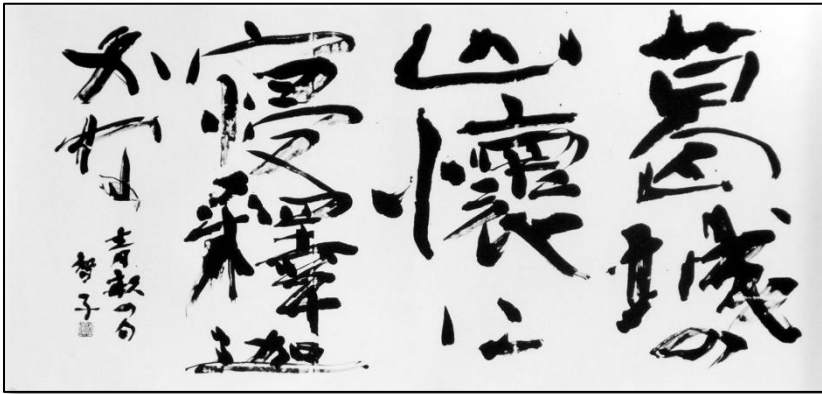 葛城の
山懐に
寝釋迦
かな
青畝の句
智子